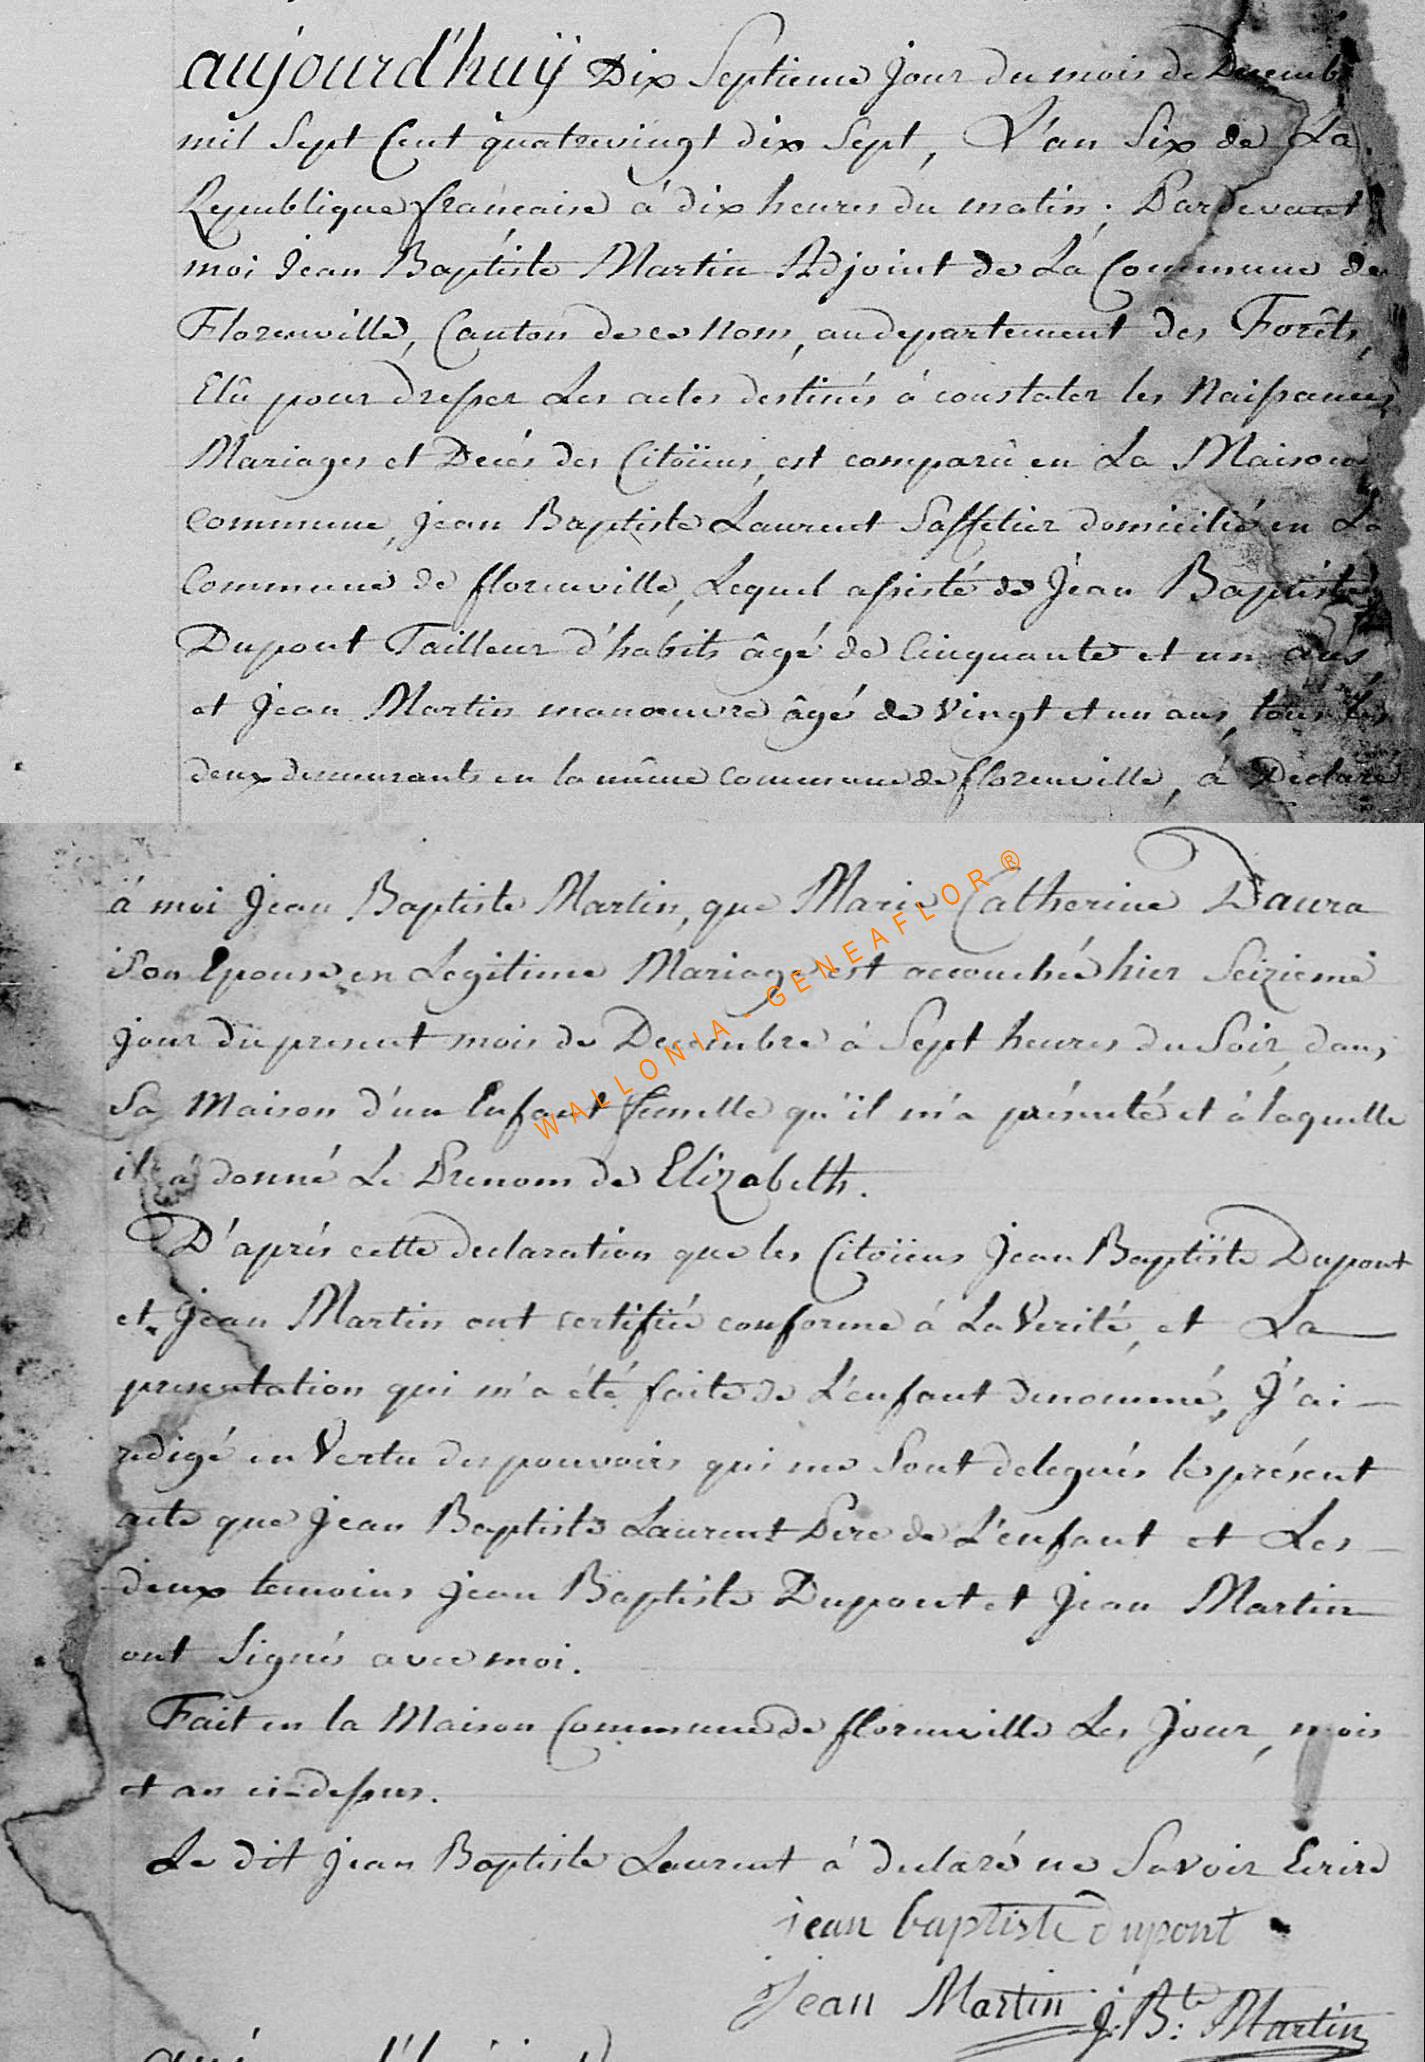 aujourd'huÿ Dix Septieme jour du mois de Decemb
mil Sept Cent quatrevingt dix Sept, L'an Six de La
Republique francaise à dix heures du matin; Pardevant
moi Jean Baptiste Martin Adjoint de La Commune de
Florenville, Canton de ce Nom, au departement des Forêts,
Elû pour dresser Les actes destinés à constater les Naissances,
Mariages et Decés des Citoïens, est comparû en La Maison
Commune, jean Baptiste Laurent Saffetier domicilié en La
Commune de florenville, Lequel assisté de Jean Baptiste
Dupont Tailleur d'habits âgé de Cinquante et un ans
et Jean Martin manœuvre âgé de Vingt et un ans, tous les
deux demeurants en la même Commune de florenville, à Declaré
à moi Jean Baptiste Martin, que Marie Catherine Daura
Son Epouse en Legitime Mariage est accouchée hier Seizieme
jour du present mois de Decembre à Sept heures du Soir, dans
Sa Maison d'un Enfant femelle qu'il m'a présenté et à laquelle
il à donné Le Prenom de Elizabeth.
D'aprés cette declaration que les Citoïens Jean Baptiste Dupont
et Jean Martin ont certifiée conforme à La Verité, et La
presentation qui m'a été faite de L'enfant denommé, J'ai
redigé en Vertu des pouvoirs qui me Sont delegués le présent
acte que Jean Baptiste Laurent Pere de L'enfant et Les
deux temoins Jean Baptiste Dupont et Jean Martin
ont Signés avec moi.
Fait en la Maison Commune de florenville Les Jour, mois
et an ci-dessus.
Le dit Jean Baptiste Laurent à declaré ne Savoir Ecrire
jean baptiste dupont
Jean Martin J. Bte: Martin
WALLONIA - GENEAFLOR ®